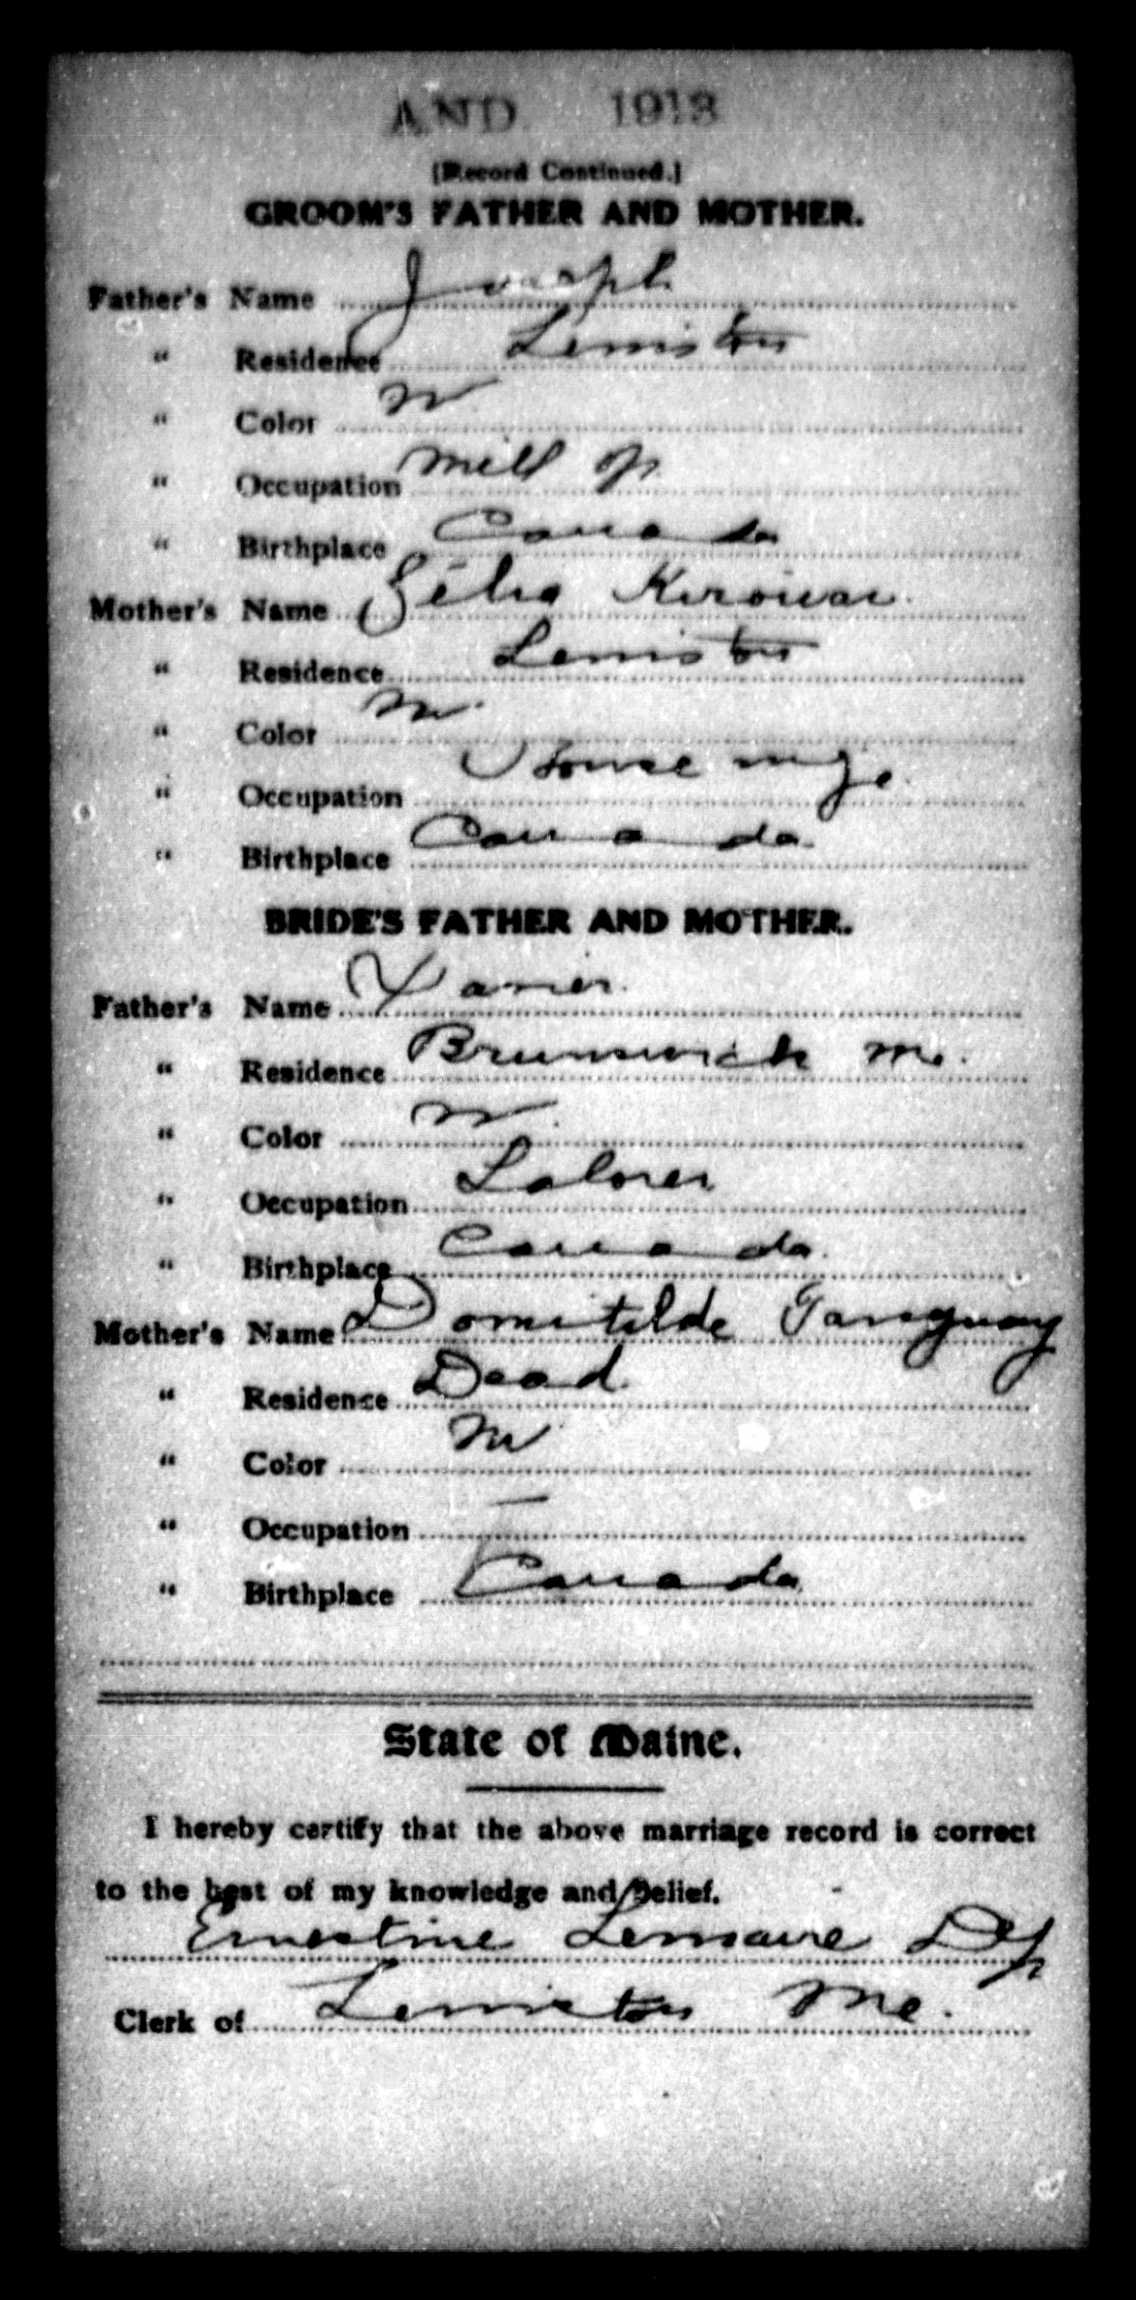 AND 1913
[Record Continued.]
GROOM'S FATHER AND MOTHER.
Father's Name Joseph
" Residence Lewiston
" Color W
" Occupation Mill Op
" Birthplace Canada
Mother's Name Zelia Kirouac
" Residence Lewiston
" Color W
" Occupation House
" Birthplace Canada
BRIDE'S FATHER AND MOTHER.
Father's Name Xavier
" Residence Brunswick Me.
" Color W.
" Occupation Laborer
" Birthplace Canada
Mother's Name Domitilde Tanguay
" Residence Dead
" Color W
" Occupation —
" Birthplace Canada
State of Maine.
I hereby certify that the above marriage record is correct
to the best of my knowledge and belief.
Ernestine Lemaire Dep
Clerk of Lewiston Me.